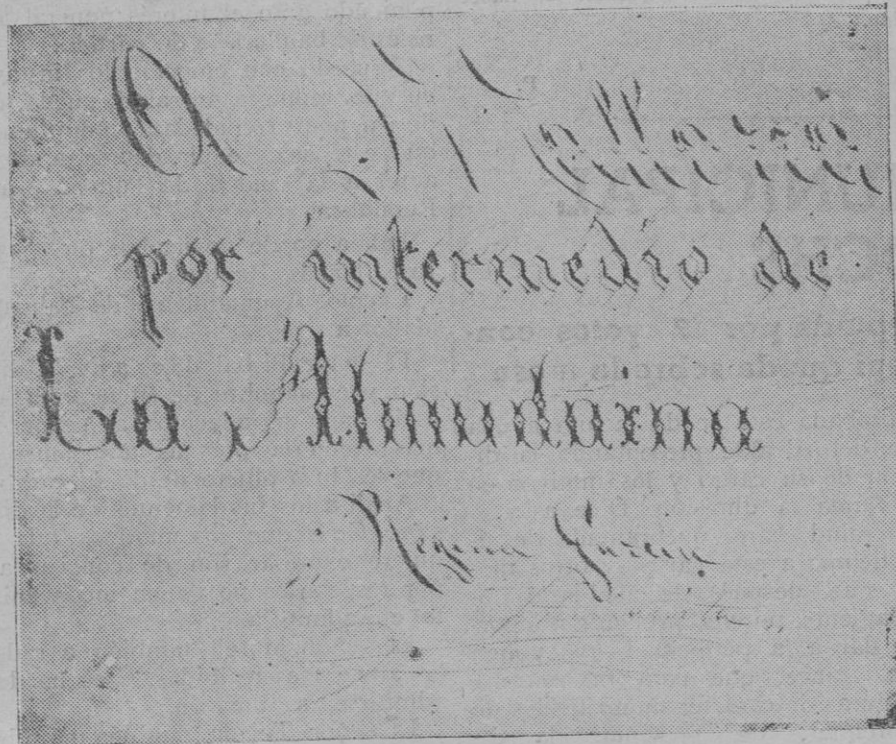 A Mallorca
por intermedio de
La Almudaina
Regina Garcia